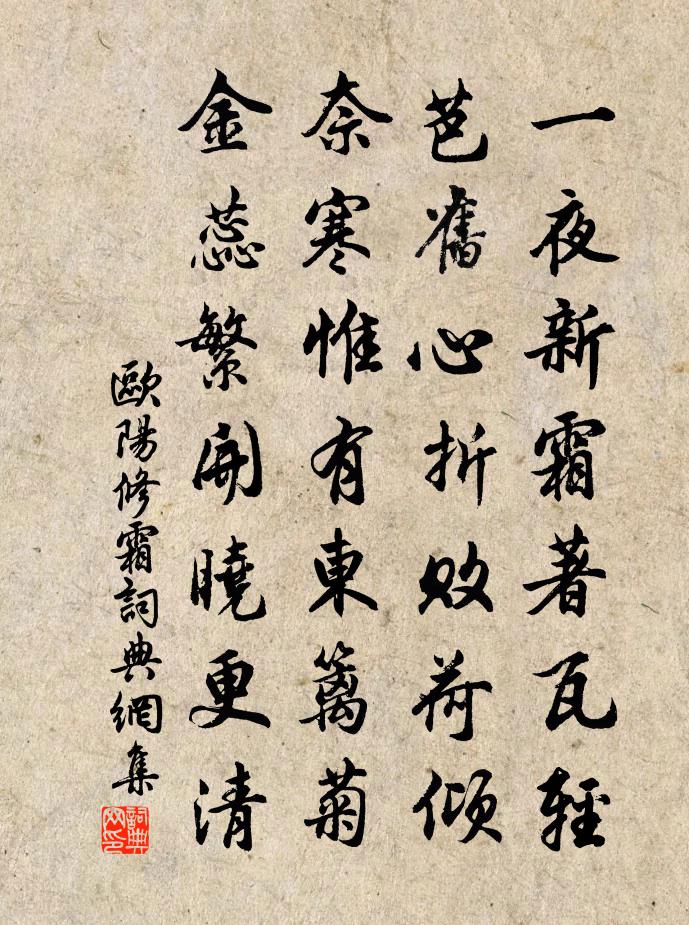 一夜新霜著瓦輕
芭舊心折敗荷傾
奈寒惟有東籬菊
金蕊繁開曉更清
歐陽修霜詞典網集
詞典網印